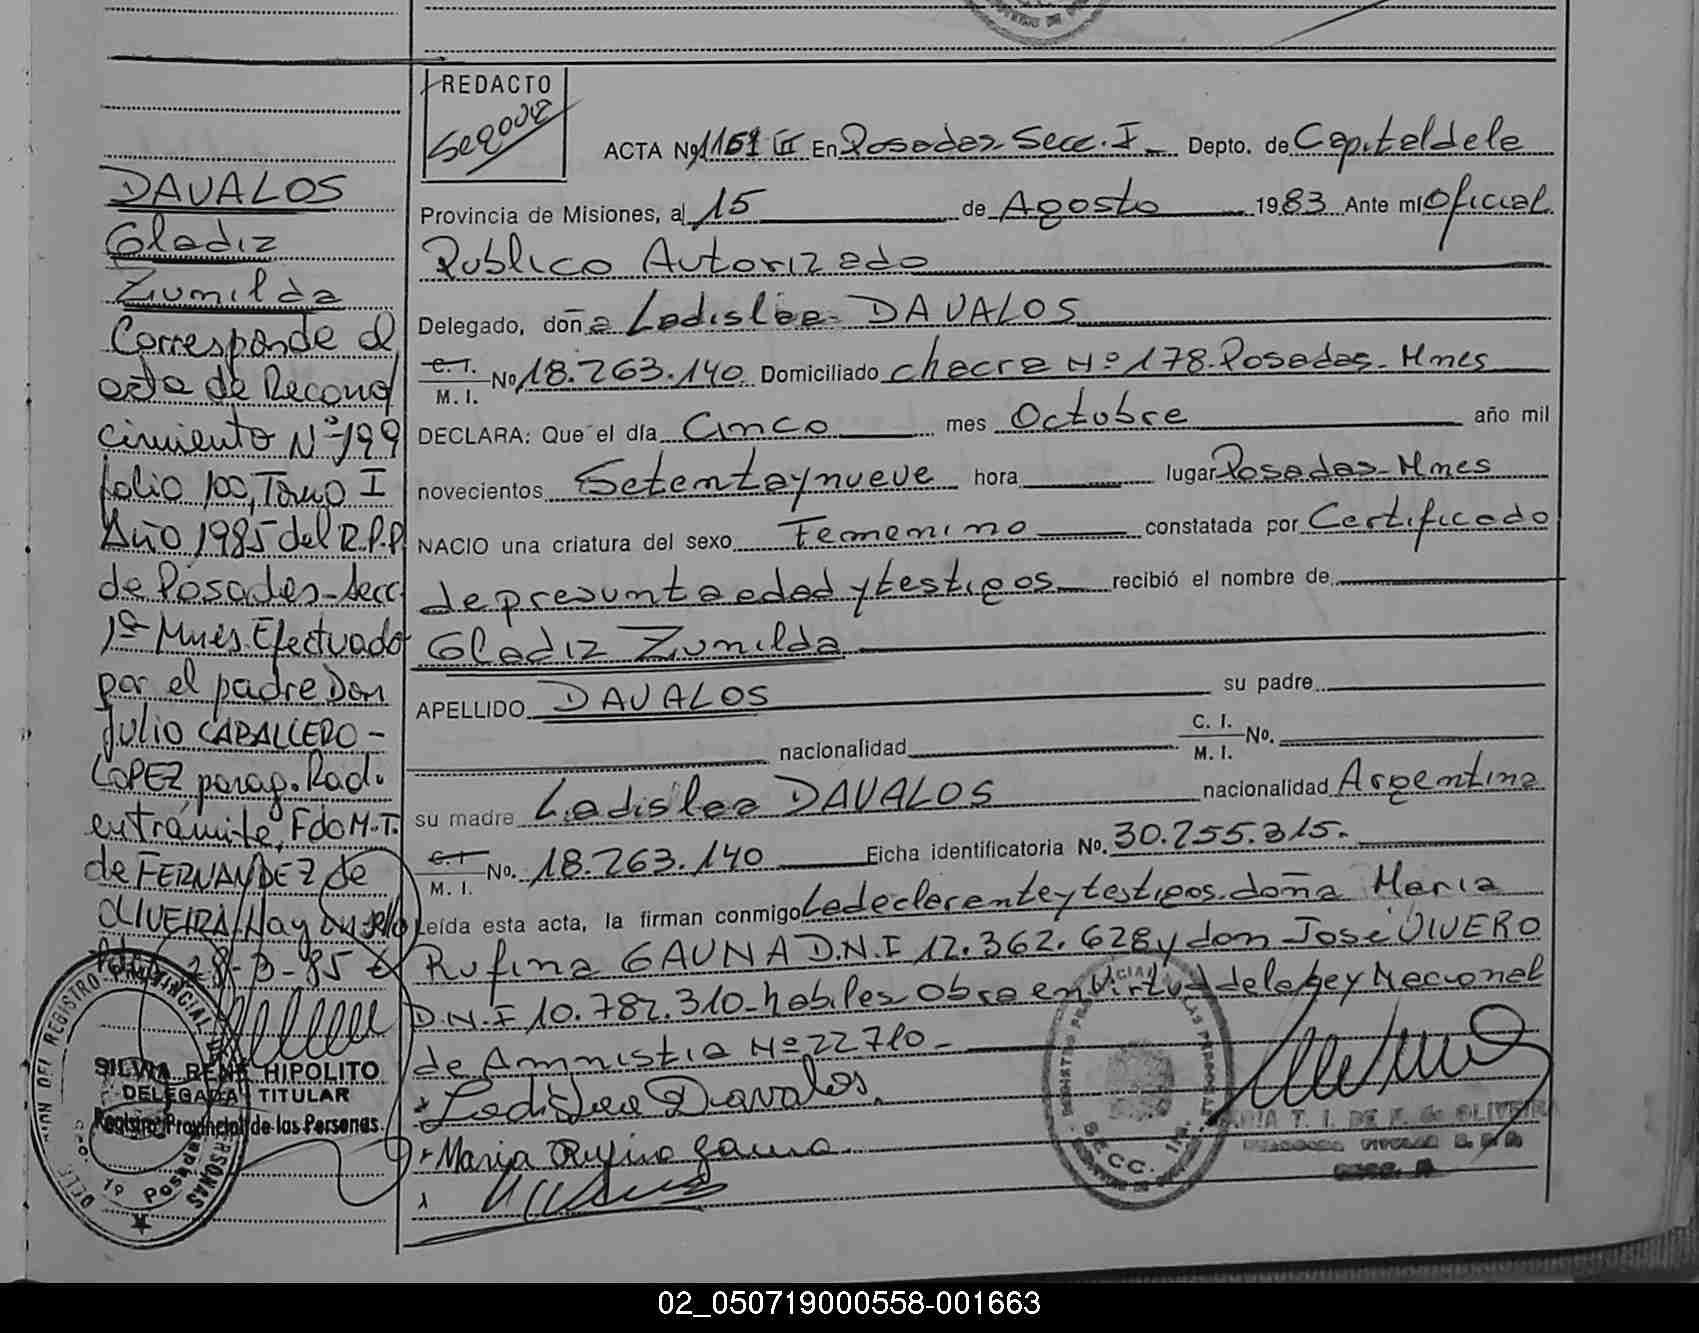 REDACTO
Segovia
ACTA Nº 1161 II En Posadas Secc. I Depto. de Capital de la
Provincia de Misiones, a 15 de Agosto 1983 Ante mi Oficial
Publico Autorizado
Delegado, doña Ladislaa DAVALOS
C.I. M. I. No 18.263.140 Domiciliado chacra Nº 178-Posadas-Mnes
DECLARA: Que el día Cinco mes Octubre año mil
novecientos Setenta y nueve hora lugar Posadas-Mnes
NACIO una criatura del sexo Femenino constatada por Certificado
de presunta edad y testigos recibió el nombre de
Gladiz Zunilda
APELLIDO DAVALOS su padre
nacionalidad C. I. M. I. No.
su madre Ladislaa DAVALOS nacionalidad Argentina
C.I. M. I. No. 18.263.140 Ficha identificatoria No. 30.255.315.
Leída esta acta, la firman conmigo La declarante y testigos doña Maria
Rufina GAUNA D.N.I 12.362.628 y don José VIVERO
D.N.I 10.782.310-habiles Obra en virtud de la Ley Nacional
de Amnistia Nº 22710-
Ladislaa Davalos
Maria Rufina Gauna
DAVALOS
Gladiz
Zunilda
Corresponde al
acta de Recono
cimiento Nº 199
folio 100, Tomo I
Año 1985 del R.P.P
de Posadas-Secc
1ª Mnes. Efectuado
por el padre Don
Julio CABALLERO-
LOPEZ parag. Rad.
en trámite, Fdo M.T.
de FERNANDEZ de
OLIVEIRA Hay un sello
28-3-85
SILVIA RENE HIPOLITO
DELEGADA TITULAR
Registro Provincial de las Personas
Posadas
SECC. 1ra.
02_050719000558-001663